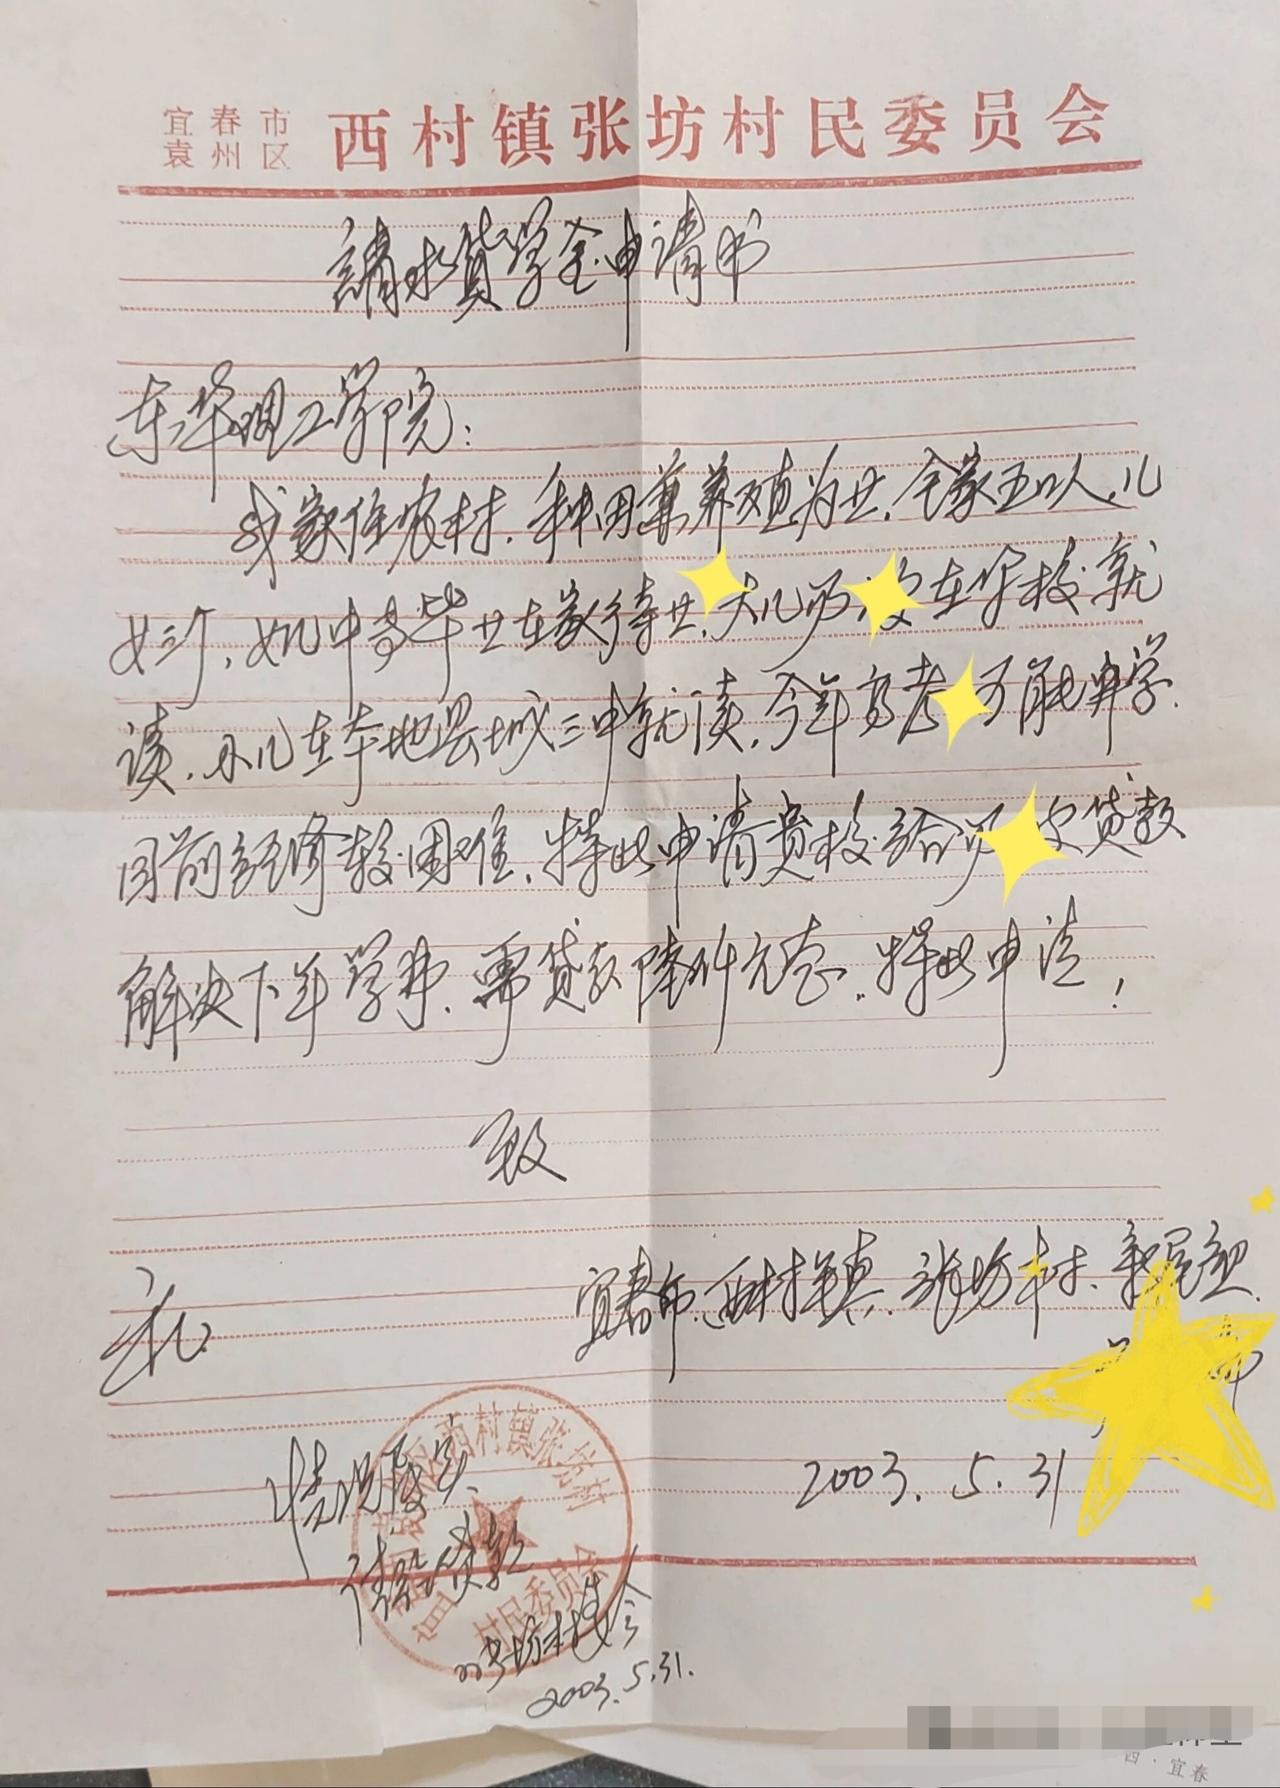 宜春市
袁州区
西村镇张坊村民委员会
請求贷学金申请书
东华理工学院：
我家住农村，种田兼养殖为业，全家五口人，儿
女三个，女儿中专毕业在家待业，大儿 在华校就
读，小儿在本地县城三中就读，今年高考 可能升学，
目前经济较困难，特此申请贵校给 贷款
解决下年学费，需贷款 元态，特此申请！
致
礼
宜春市，西村镇，张坊村，
2003.5.31
情况属实
请给贷款
张坊村委会
2003.5.31.
袁州区西村镇张坊村
村民委员会
西·宜春